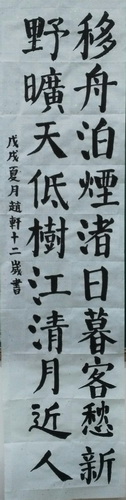 移舟泊煙渚日暮客愁新
野曠天低樹江清月近人
戊戌夏月趙軒十二歲書